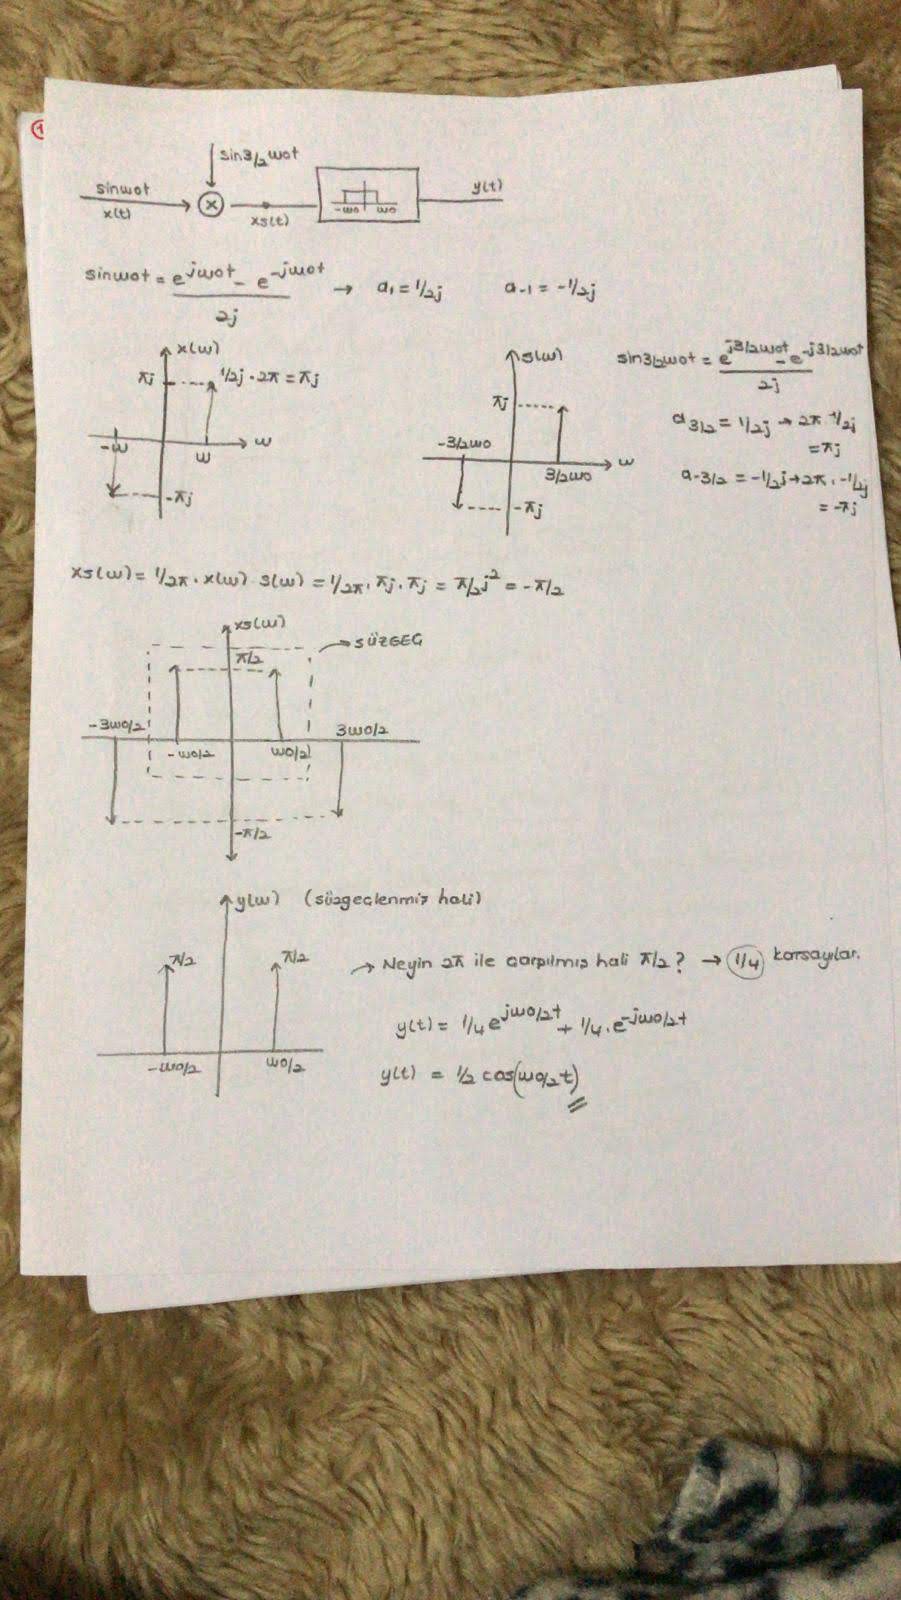 1
sin3/2 w0t
sinw0t
x(t)
x
xs(t)
-w0 w0
y(t)
sinw0t = e^jw0t - e^-jw0t / 2j → a1 = 1/2j a-1 = -1/2j
x(w)
πj 1/2j · 2π = πj
-w w w
-πj
s(w)
πj
-3/2w0 3/2w0 w
-πj
sin3/2w0t = e^j3/2w0t - e^-j3/2w0t / 2j
a3/2 = 1/2j → 2π · 1/2j
= πj
a-3/2 = -1/2j → 2π · -1/2j
= -πj
xs(w) = 1/2π · x(w) · s(w) = 1/2π · πj · πj = π/2 j² = -π/2
xs(w)
→ SÜZGEÇ
π/2
-3w0/2 -w0/2 w0/2 3w0/2
-π/2
y(w) (süzgeçlenmiş hali)
π/2 π/2
-w0/2 w0/2
→ Neyin 2π ile çarpılmış hali π/2? → 1/4 katsayılar.
y(t) = 1/4 e^jw0/2t + 1/4 · e^-jw0/2t
y(t) = 1/2 cos(w0/2 t)